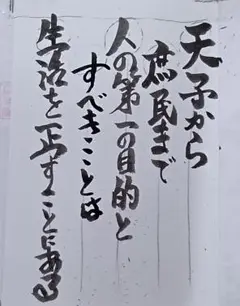 天子から
庶民まで
人の第一の目的と
すべきことは
生活を正すことにある